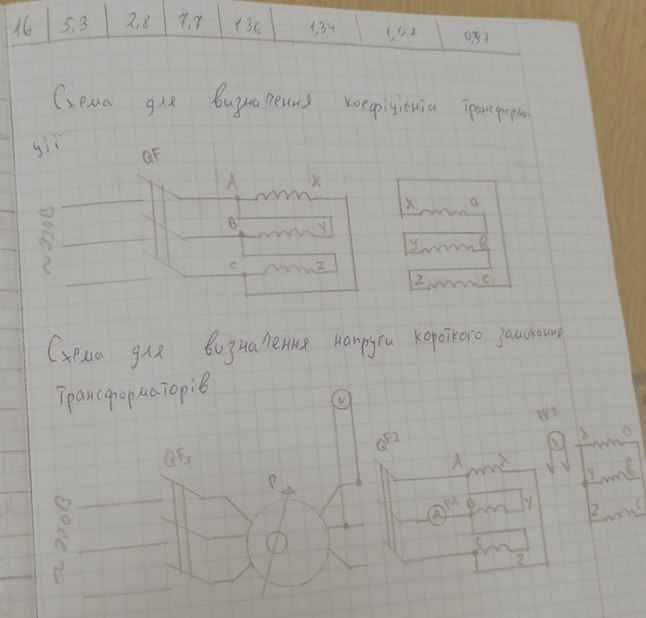 16 5,3 2,8 7,7 136 1,34 1,07 0,91
Схема для визначення коефіцієнта трансформа-
ції
QF
A X
~220В
B Y
C Z
X
Y
Z C
Схема для визначення напруги короткого замикання
трансформаторів
V
QF1
P
QF2
A
~220В
A PA B Y
Z
V
Y
Z